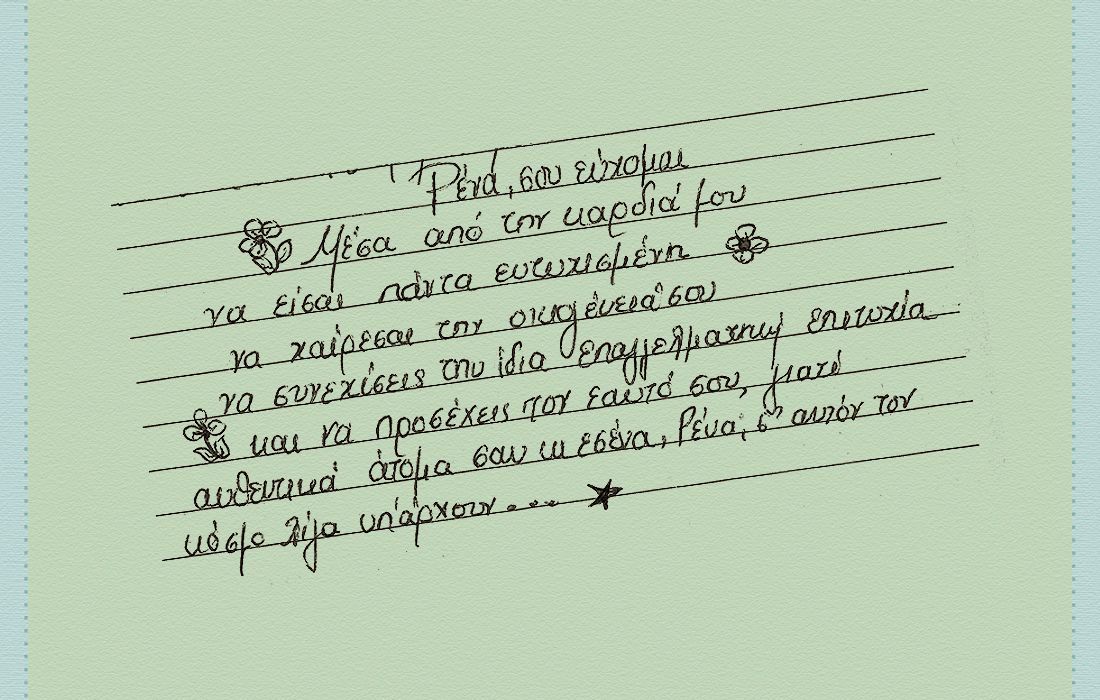 Ρένα, σου εύχομαι
Μέσα από την καρδιά μου
να είσαι πάντα ευτυχισμένη
να χαίρεσαι την οικογένειά σου
να συνεχίσεις την ίδια επαγγελματική επιτυχία
και να προσέχεις τον εαυτό σου, γιατί
αυθεντικά άτομα σαν κι εσένα, Ρένα, σ' αυτόν τον
κόσμο λίγα υπάρχουν....